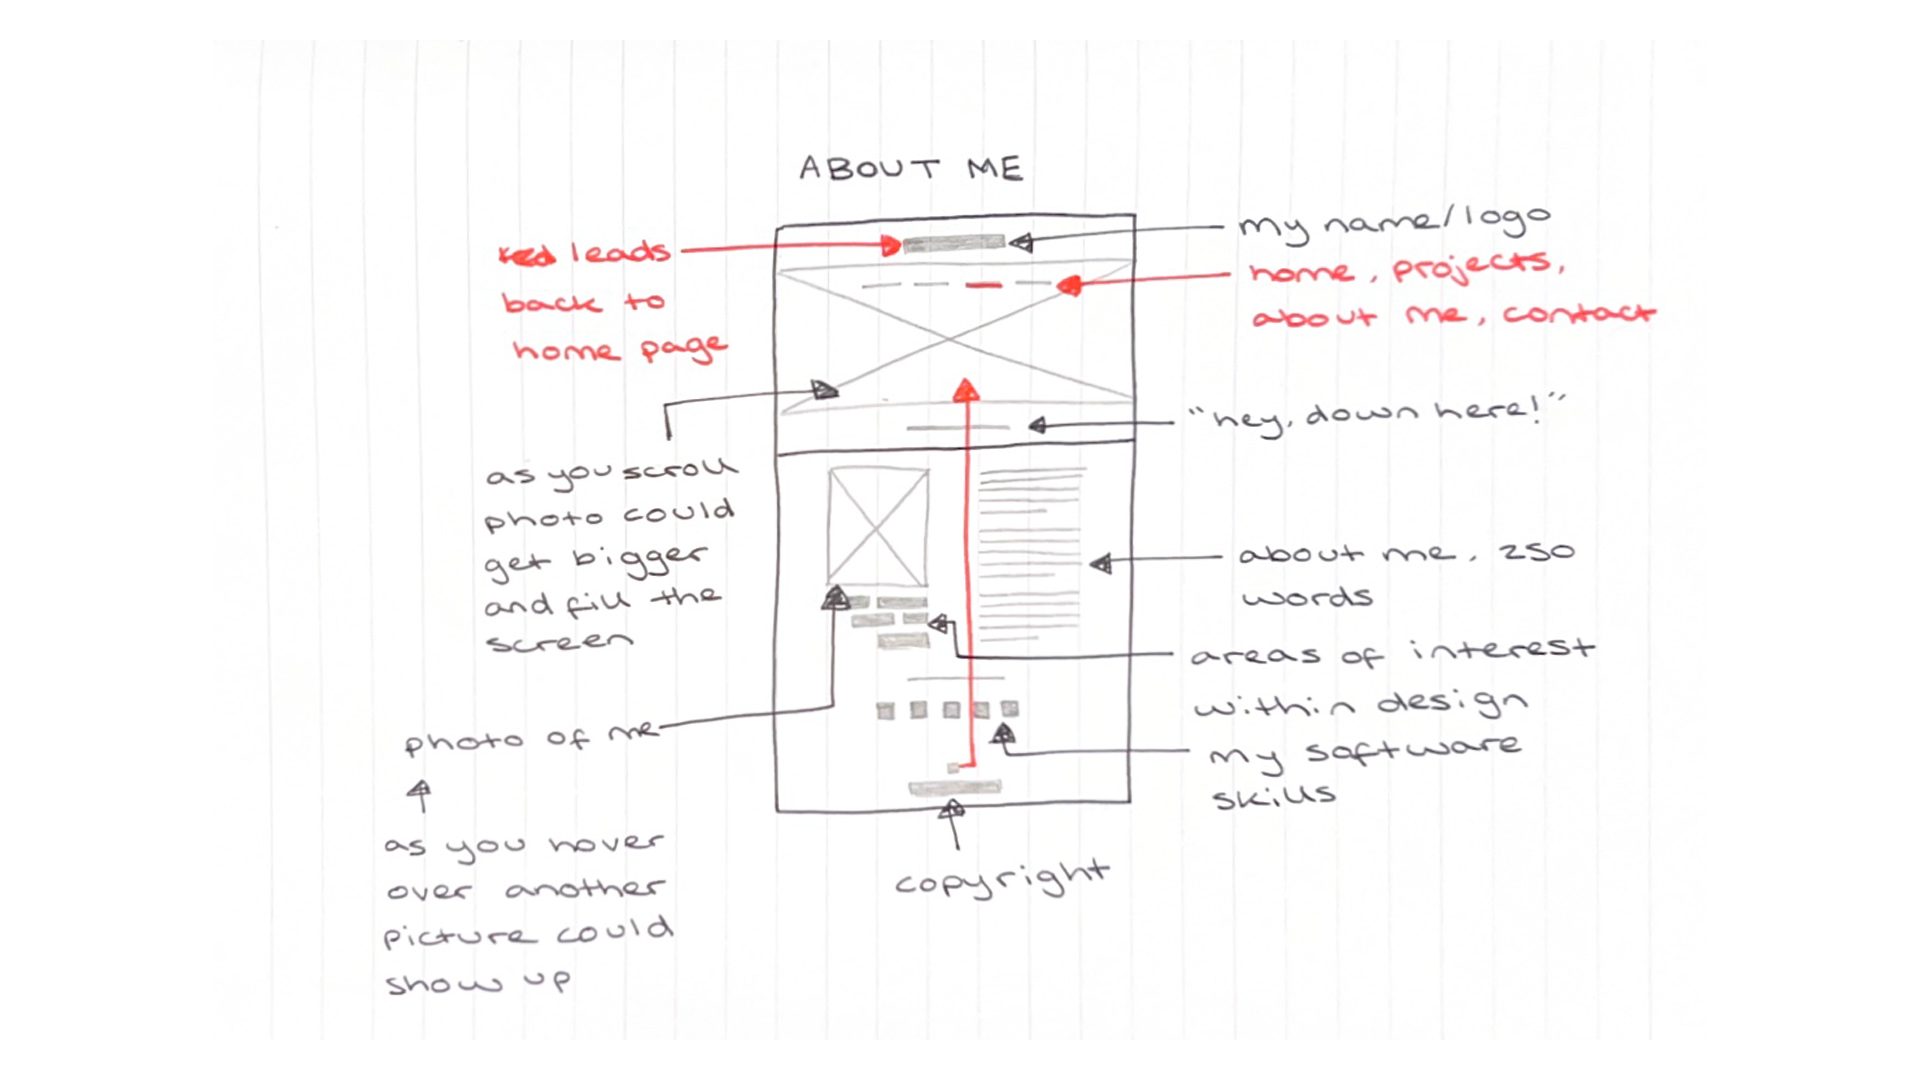 ABOUT ME
leads
back to
home page
my name/logo
home, projects,
about me, contact
"hey, down here!"
as you scroll
photo could
get bigger
and fill the
screen
about me, 250
words
areas of interest
within design
my software
skills
photo of me
as you hover
over another
picture could
show up
copyright